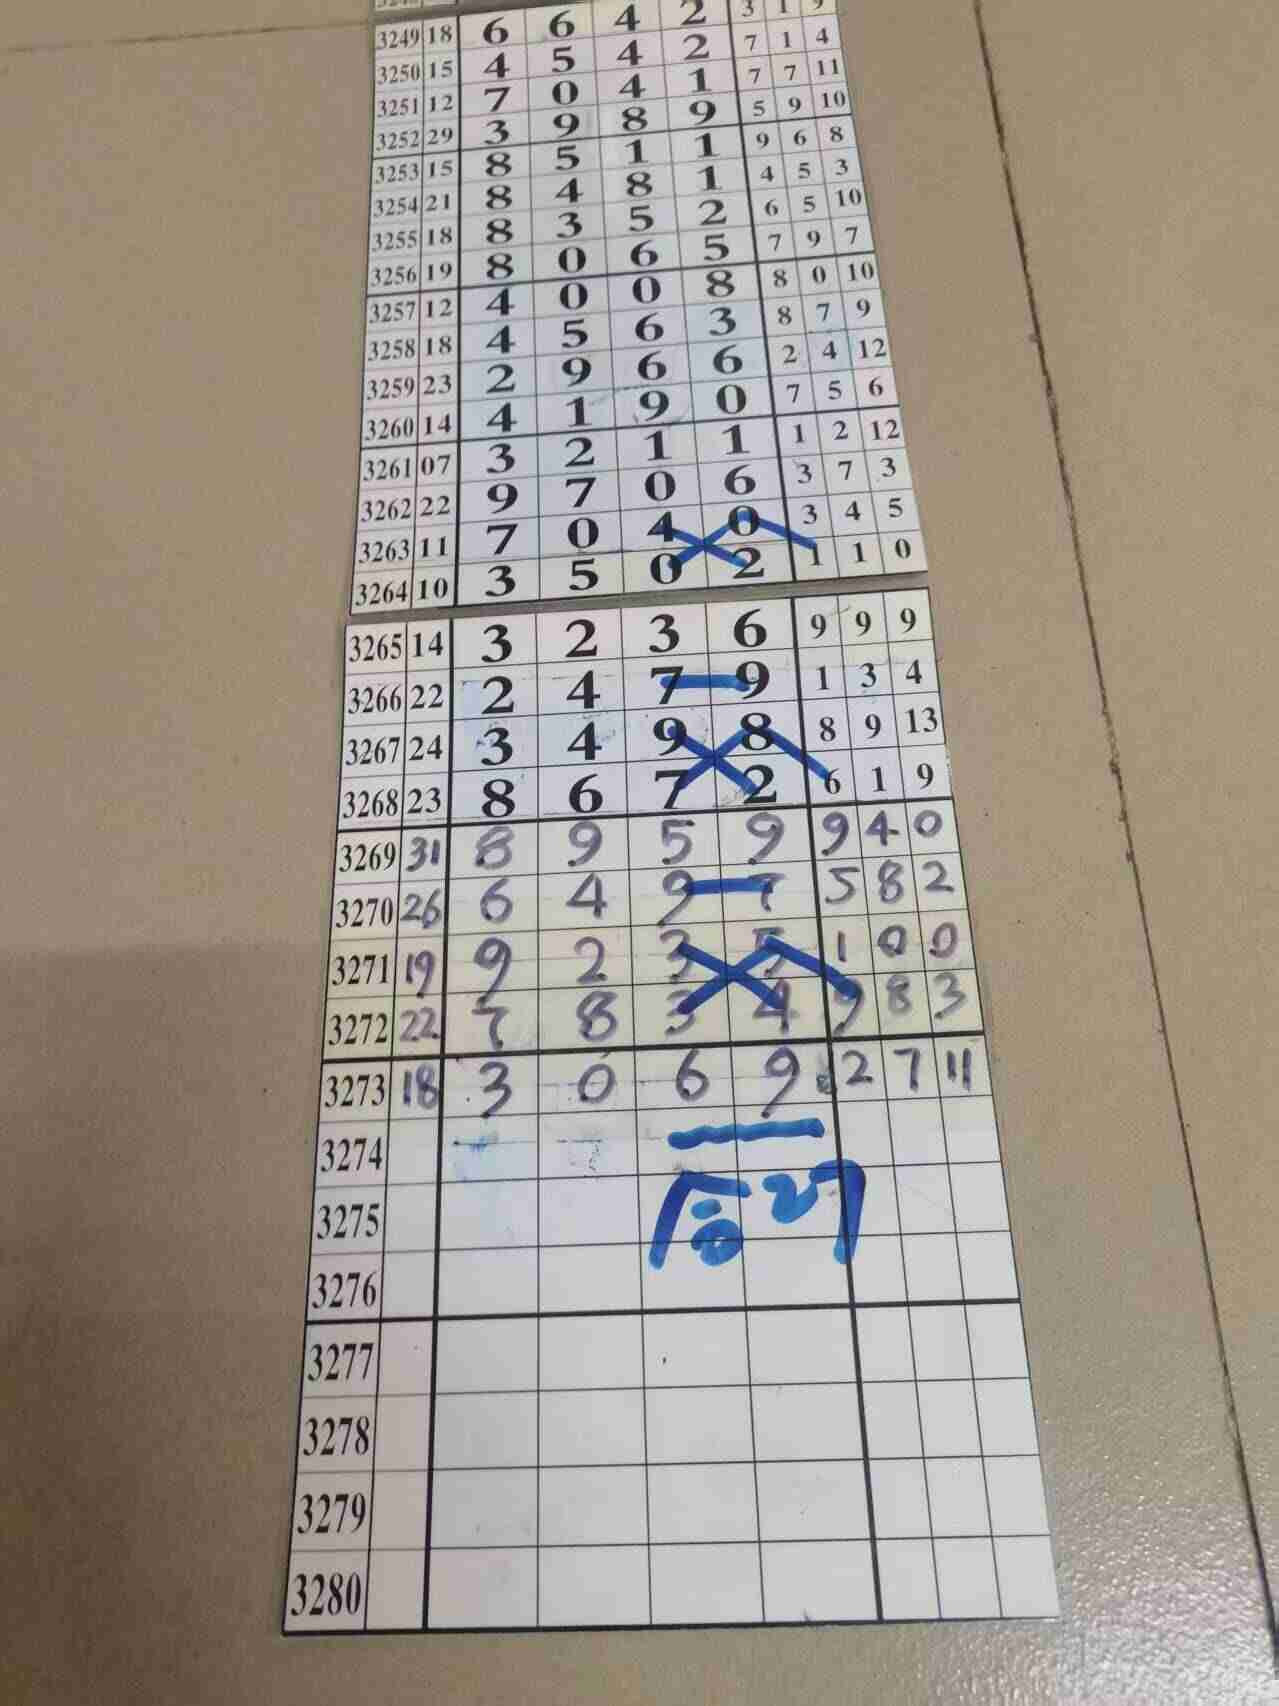 3249 18 6 6 4 2 3 1 9
3250 15 4 5 4 2 7 1 4
3251 12 7 0 4 1 7 7 11
3252 29 3 9 8 9 5 9 10
3253 15 8 5 1 1 9 6 8
3254 21 8 4 8 1 4 5 3
3255 18 8 3 5 2 6 5 10
3256 19 8 0 6 5 7 9 7
3257 12 4 0 0 8 8 0 10
3258 18 4 5 6 3 8 7 9
3259 23 2 9 6 6 2 4 12
3260 14 4 1 9 0 7 5 6
3261 07 3 2 1 1 1 2 12
3262 22 9 7 0 6 3 7 3
3263 11 7 0 4 0 3 4 5
3264 10 3 5 0 2 1 1 0
3265 14 3 2 3 6 9 9 9
3266 22 2 4 7 9 1 3 4
3267 24 3 4 9 8 8 9 13
3268 23 8 6 7 2 6 1 9
3269 31 8 9 5 9 9 4 0
3270 26 6 4 9 7 5 8 2
3271 19 9 2 3 5 1 0 0
3272 22 7 8 3 4 9 8 3
3273 18 3 0 6 9 2 7 11
3274
3275 27
3276
3277
3278
3279
3280